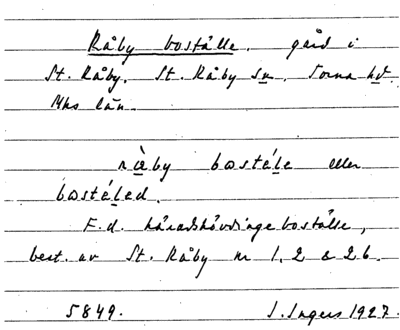 Råby boställe, gård i
St. Råby, St. Råby sn, Torna hd.
Mhs län.
ràby bosté̱le eller
bosté̱led.
F.d. häradshövdingeboställe,
best. av St. Råby nr 1, 2 & 2b.
5849. I. Ingers 1927.